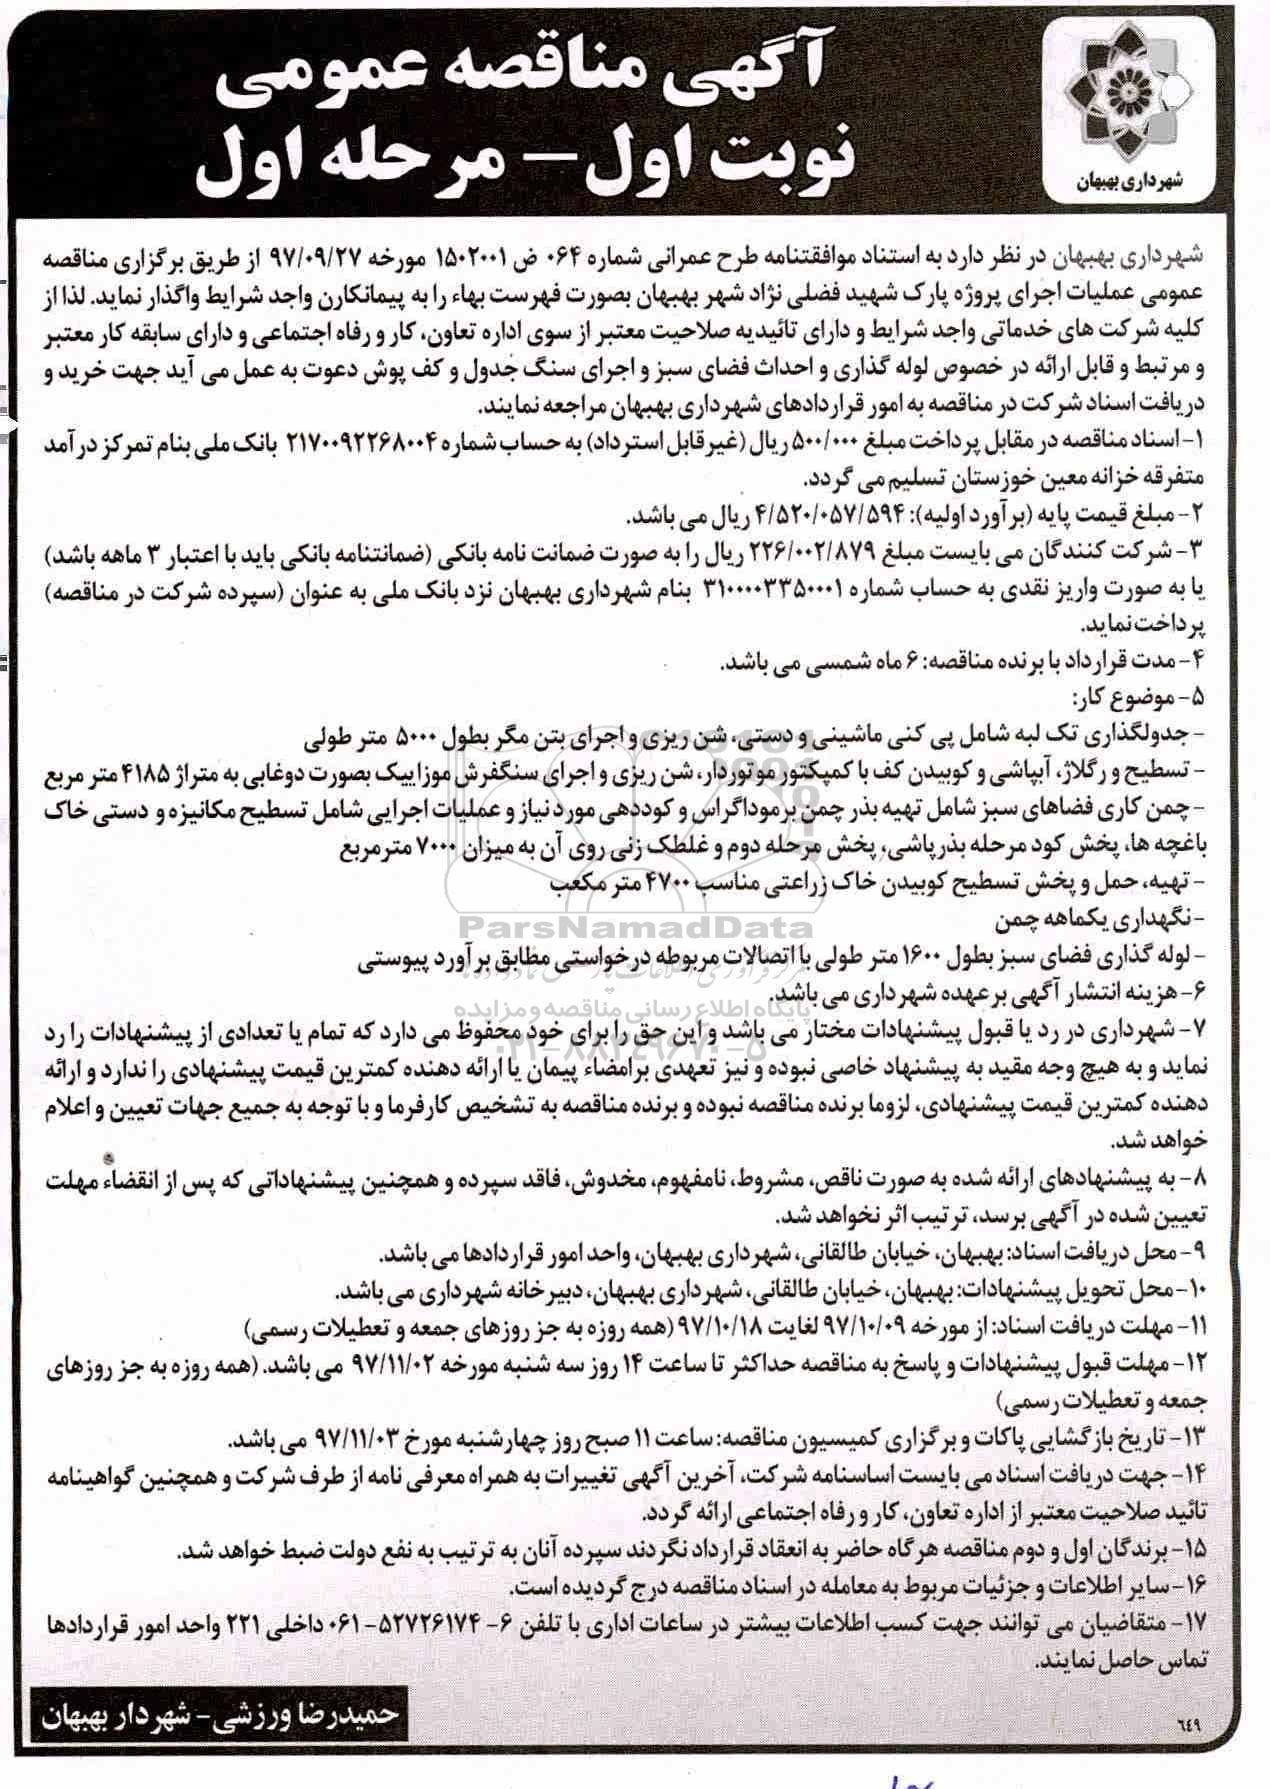 شهرداری بهبهان
آگهی مناقصه عمومی
نوبت اول – مرحله اول
شهرداری بهبهان در نظر دارد به استناد موافقتنامه طرح عمرانی شماره ۰۶۴ ض ۱۵۰۲۰۰۱ مورخه ۹۷/۰۹/۲۷ از طریق برگزاری مناقصه
عمومی عملیات اجرای پروژه پارک شهید فضلی نژاد شهر بهبهان بصورت فهرست بهاء را به پیمانکارن واجد شرایط واگذار نماید. لذا از
کلیه شرکت های خدماتی واجد شرایط و دارای تائیدیه صلاحیت معتبر از سوی اداره تعاون، کار و رفاه اجتماعی و دارای سابقه کار معتبر
و مرتبط و قابل ارائه در خصوص لوله گذاری و احداث فضای سبز و اجرای سنگ جدول و کف پوش دعوت به عمل می آید جهت خرید و
دریافت اسناد شرکت در مناقصه به امور قراردادهای شهرداری بهبهان مراجعه نمایند.
۱- اسناد مناقصه در مقابل پرداخت مبلغ ۵۰۰/۰۰۰ ریال (غیرقابل استرداد) به حساب شماره ۲۱۷۰۰۹۲۲۶۸۰۰۴ بانک ملی بنام تمرکز درآمد
متفرقه خزانه معین خوزستان تسلیم می گردد.
۲- مبلغ قیمت پایه (برآورد اولیه): ۴/۵۲۰/۰۵۷/۵۹۴ ریال می باشد.
۳- شرکت کنندگان می بایست مبلغ ۲۲۶/۰۰۲/۸۷۹ ریال را به صورت ضمانت نامه بانکی (ضمانتنامه بانکی باید با اعتبار ۳ ماهه باشد)
یا به صورت واریز نقدی به حساب شماره ۳۱۰۰۰۰۳۳۵۰۰۰۱ بنام شهرداری بهبهان نزد بانک ملی به عنوان (سپرده شرکت در مناقصه)
پرداخت نماید.
۴- مدت قرارداد با برنده مناقصه: ۶ ماه شمسی می باشد.
۵- موضوع کار:
- جدولگذاری تک لبه شامل پی کنی ماشینی و دستی، شن ریزی و اجرای بتن مگر بطول ۵۰۰۰ متر طولی
- تسطیح و رگلاژ، آبپاشی و کوبیدن کف با کمپکتور موتوردار، شن ریزی و اجرای سنگفرش موزاییک بصورت دوغابی به متراژ ۴۱۸۵ متر مربع
- چمن کاری فضاهای سبز شامل تهیه بذر چمن برموداگراس و کوددهی مورد نیاز و عملیات اجرایی شامل تسطیح مکانیزه و دستی خاک
باغچه ها، پخش کود مرحله بذرپاشی، پخش مرحله دوم و غلطک زنی روی آن به میزان ۷۰۰۰ مترمربع
- تهیه، حمل و پخش تسطیح کوبیدن خاک زراعتی مناسب ۴۷۰۰ متر مکعب
- نگهداری یکماهه چمن
ParsNamadData
- لوله گذاری فضای سبز بطول ۱۶۰۰ متر طولی با اتصالات مربوطه درخواستی مطابق برآورد پیوستی
۶- هزینه انتشار آگهی برعهده شهرداری می باشد.
پایگاه اطلاع رسانی مناقصه و مزایده
۷- شهرداری در رد یا قبول پیشنهادات مختار می باشد و این حق را برای خود محفوظ می دارد که تمام یا تعدادی از پیشنهادات را رد
۰۲۱-۸۸۳۴۹۶۷۰-۵
نماید و به هیچ وجه مقید به پیشنهاد خاصی نبوده و نیز تعهدی برامضاء پیمان یا ارائه دهنده کمترین قیمت پیشنهادی را ندارد و ارائه
دهنده کمترین قیمت پیشنهادی، لزوما برنده مناقصه نبوده و برنده مناقصه به تشخیص کارفرما و با توجه به جمیع جهات تعیین و اعلام
خواهد شد.
۸- به پیشنهادهای ارائه شده به صورت ناقص، مشروط، نامفهوم، مخدوش، فاقد سپرده و همچنین پیشنهاداتی که پس از انقضاء مهلت
تعیین شده در آگهی برسد، ترتیب اثر نخواهد شد.
۹- محل دریافت اسناد: بهبهان، خیابان طالقانی، شهرداری بهبهان، واحد امور قراردادها می باشد.
۱۰- محل تحویل پیشنهادات: بهبهان، خیابان طالقانی، شهرداری بهبهان، دبیرخانه شهرداری می باشد.
۱۱- مهلت دریافت اسناد: از مورخه ۹۷/۱۰/۰۹ لغایت ۹۷/۱۰/۱۸ (همه روزه به جز روزهای جمعه و تعطیلات رسمی)
۱۲- مهلت قبول پیشنهادات و پاسخ به مناقصه حداکثر تا ساعت ۱۴ روز سه شنبه مورخه ۹۷/۱۱/۰۲ می باشد. (همه روزه به جز روزهای
جمعه و تعطیلات رسمی)
۱۳- تاریخ بازگشایی پاکات و برگزاری کمیسیون مناقصه: ساعت ۱۱ صبح روز چهارشنبه مورخ ۹۷/۱۱/۰۳ می باشد.
۱۴- جهت دریافت اسناد می بایست اساسنامه شرکت، آخرین آگهی تغییرات به همراه معرفی نامه از طرف شرکت و همچنین گواهینامه
تائید صلاحیت معتبر از اداره تعاون، کار و رفاه اجتماعی ارائه گردد.
۱۵- برندگان اول و دوم مناقصه هرگاه حاضر به انعقاد قرارداد نگردند سپرده آنان به ترتیب به نفع دولت ضبط خواهد شد.
۱۶- سایر اطلاعات و جزئیات مربوط به معامله در اسناد مناقصه درج گردیده است.
۱۷- متقاضیان می توانند جهت کسب اطلاعات بیشتر در ساعات اداری با تلفن ۶- ۵۲۷۲۶۱۷۴-۰۶۱ داخلی ۲۲۱ واحد امور قراردادها
تماس حاصل نمایند.
حمیدرضا ورزشی- شهردار بهبهان
٦٤٩